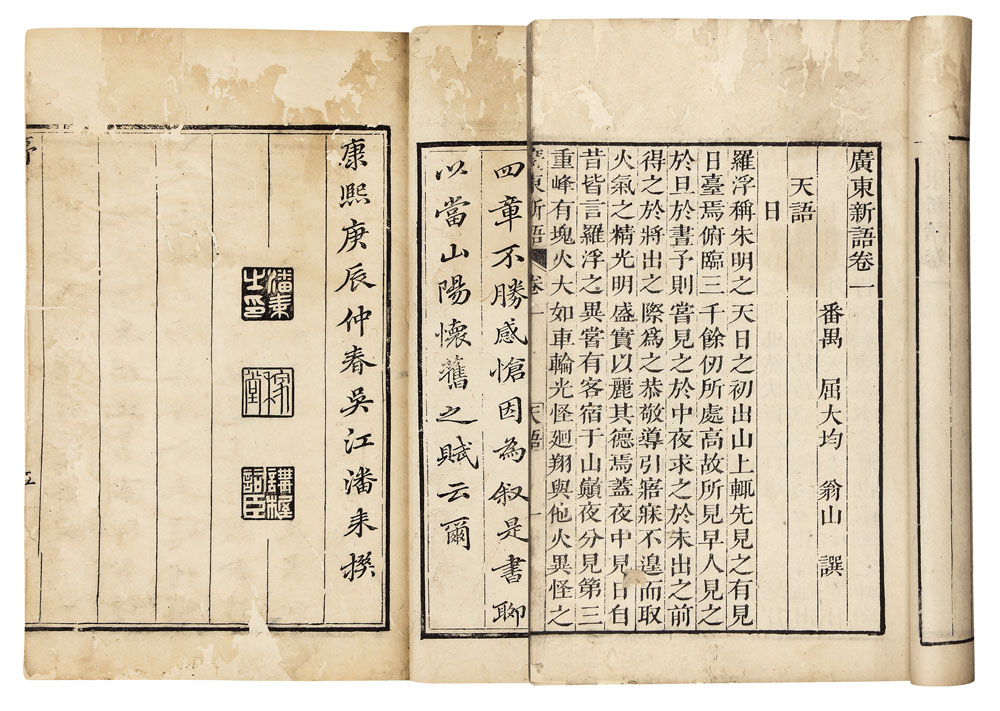 廣東新語卷一
番禺 屈大均 翁山 譔
天語
日
羅浮稱朱明之天日之初出山上輒先見之有見
日臺焉俯臨三千餘仞所處高故所見早人見之
於旦於晝予則嘗見之於中夜求之於未出之前
得之於將出之際爲之恭敬導引寤寐不遑而取
火氣之精光明盛實以麗其德焉蓋夜中見日自
昔皆言羅浮之異嘗有客宿于山巔夜分見第三
重峰有塊火大如車輪光怪廻翔與他火異怪之
廣東新語 卷一 天語 一
四章不勝感愴因為叙是書聊
以當山陽懷舊之賦云爾
康熙庚辰仲春吳江潘耒撰
潘耒之印
稼堂